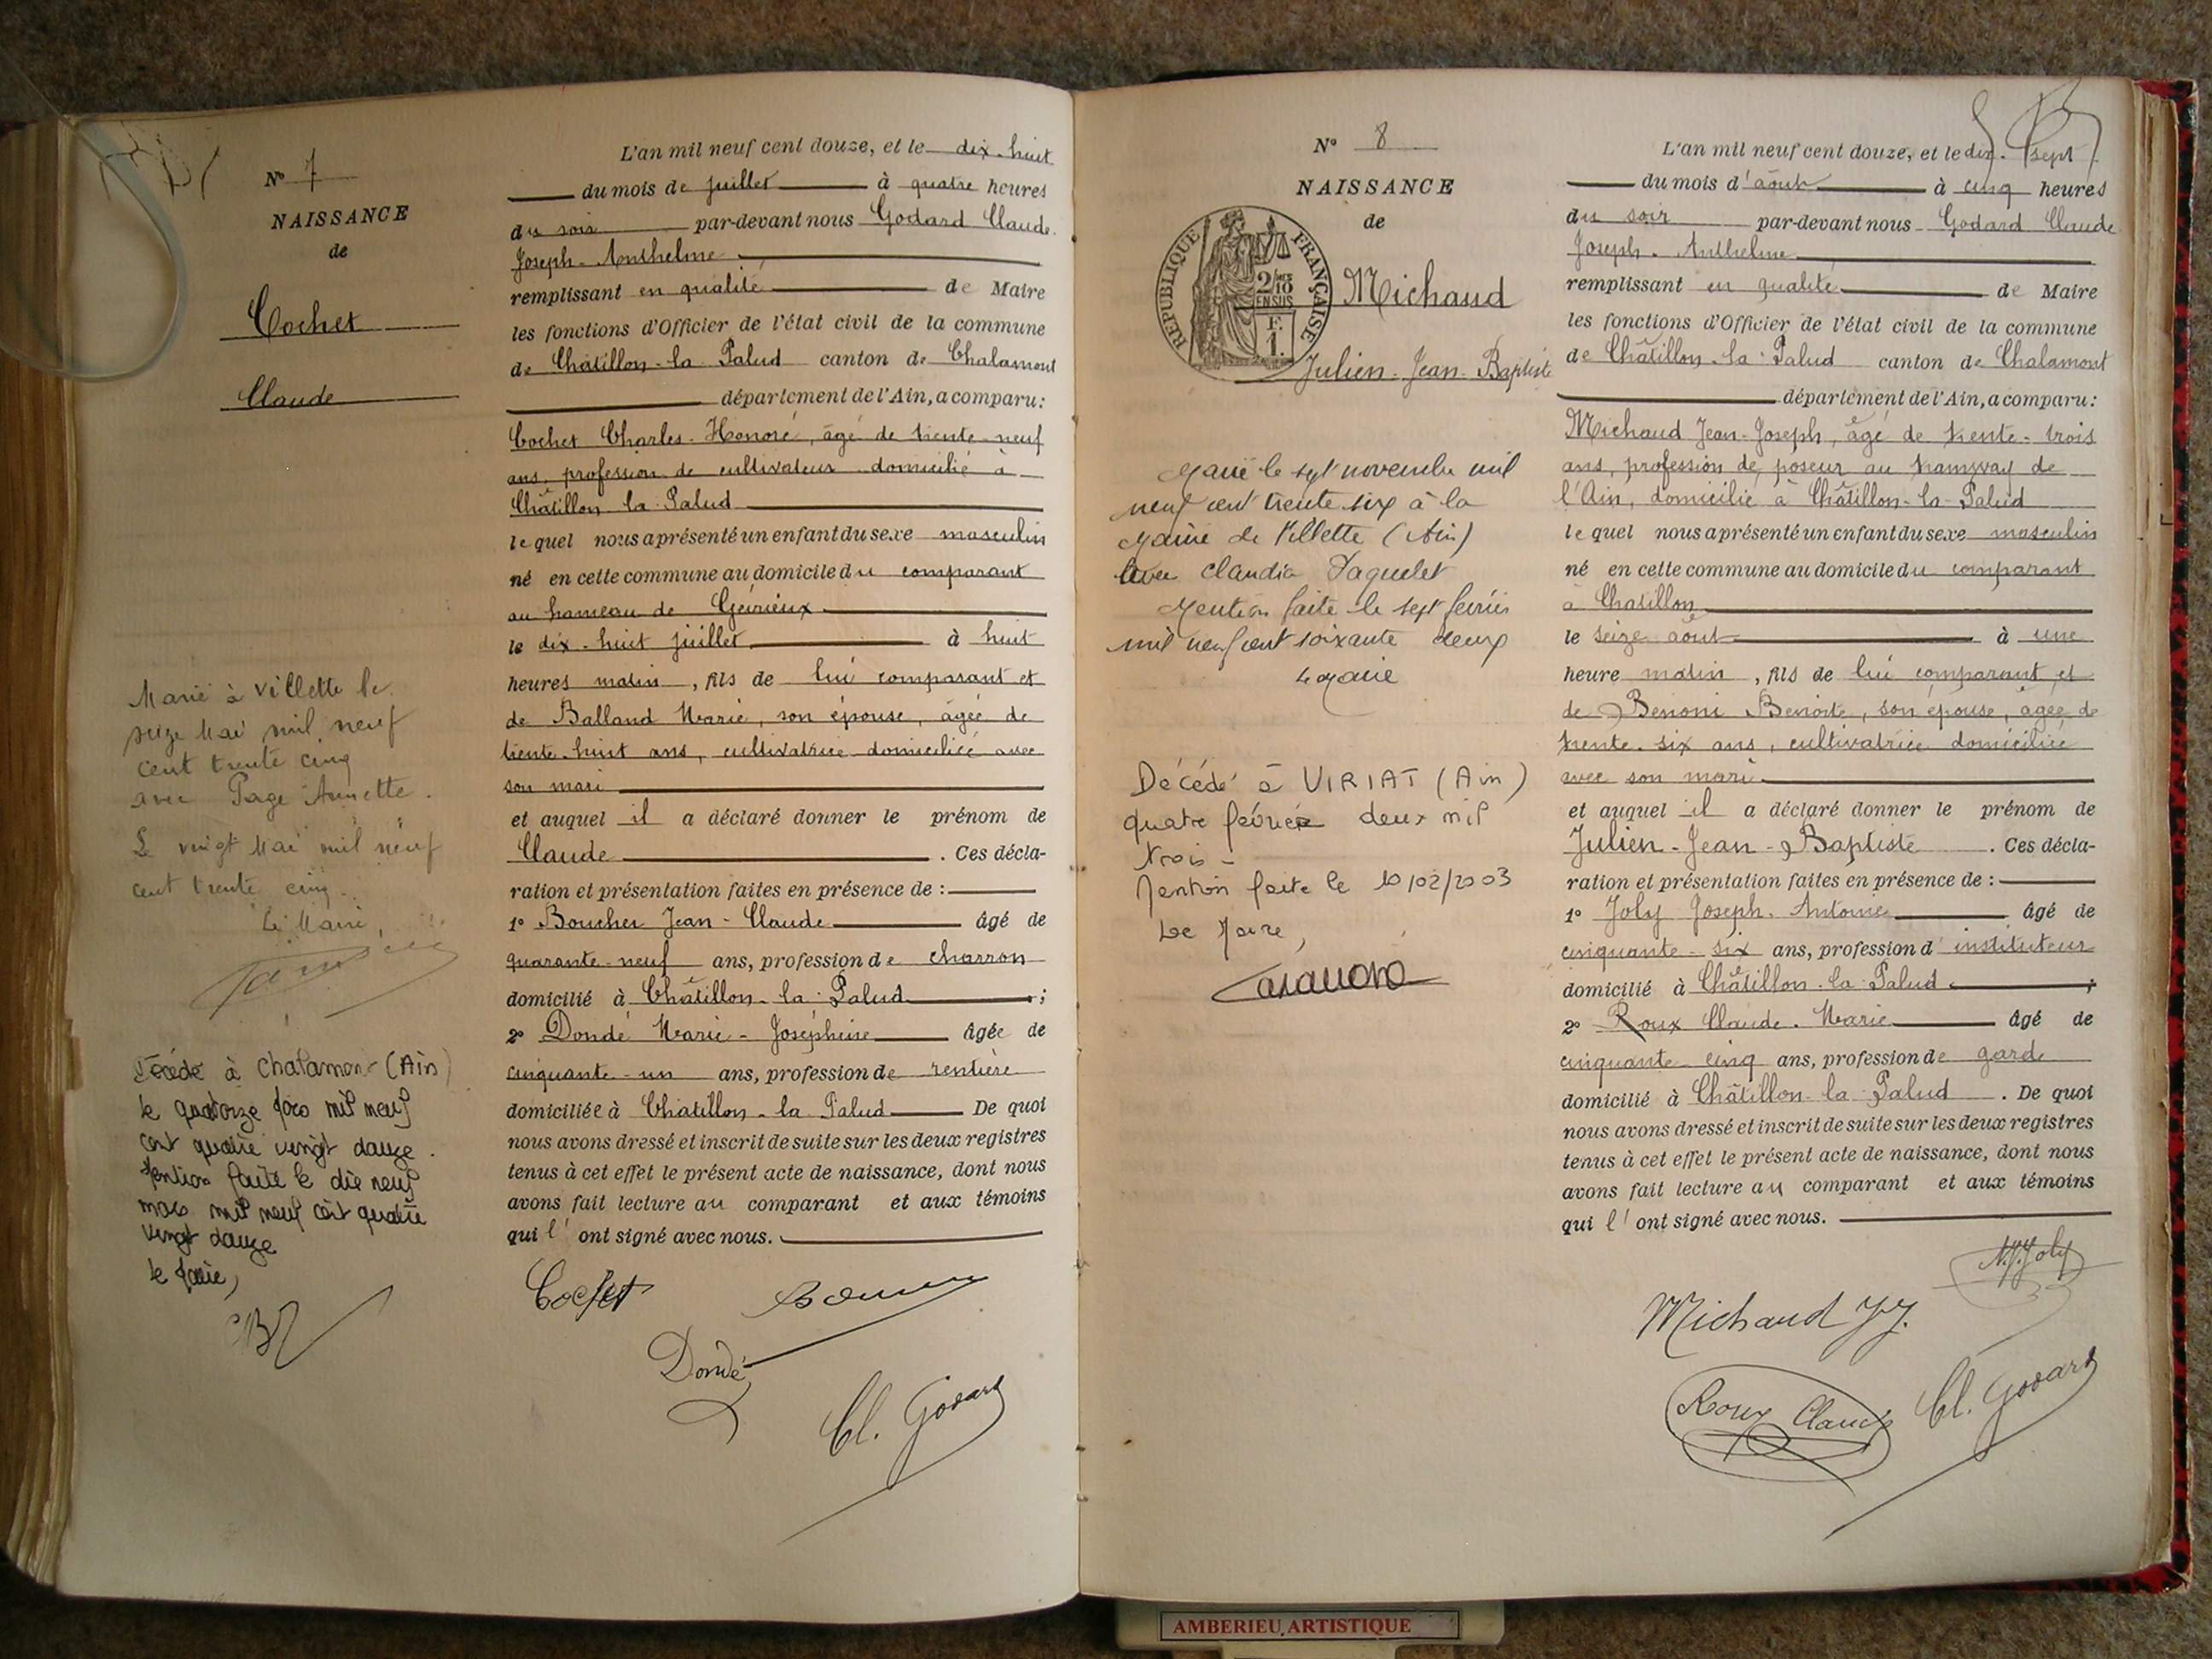 Nº 7
NAISSANCE
de
Cochet
Claude
Marié à Villette le
seize Mai mil neuf
cent trente cinq
avec Page Annette.
Le vingt Mai mil neuf
cent trente cinq.
Le Maire,
Décédé à Chalamont (Ain)
le quatorze Mars mil neuf
cent quatre vingt douze.
Mention faite le dix neuf
mars mil neuf cent quatre
vingt douze
Le Maire,
L'an mil neuf cent douze, et le dix-huit
du mois de juillet à quatre heures
du soir par-devant nous Godard Claude
Joseph-Anthelme
remplissant en qualité de Maire
les fonctions d'Officier de l'état civil de la commune
de Châtillon-la-Palud canton de Chalamont
département de l'Ain, a comparu:
Cochet Charles-Honoré, âgé de trente-neuf
ans, profession de cultivateur domicilié à
Châtillon-la-Palud
lequel nous a présenté un enfant du sexe masculin
né en cette commune au domicile du comparant
au hameau de Gévrieux
le dix-huit juillet à huit
heures matin, fils de lui comparant et
de Balland Marie, son épouse, âgée de
trente-huit ans, cultivatrice domiciliée avec
son mari
et auquel il a déclaré donner le prénom de
Claude. Ces décla-
ration et présentation faites en présence de :
1º Boucher Jean-Claude âgé de
quarante-neuf ans, profession de charron
domicilié à Châtillon-la-Palud ;
2º Dondé Marie-Joséphine âgée de
cinquante-un ans, profession de rentière
domiciliée à Chatillon-la-Palud De quoi
nous avons dressé et inscrit de suite sur les deux registres
tenus à cet effet le présent acte de naissance, dont nous
avons fait lecture au comparant et aux témoins
qui l' ont signé avec nous.
Cochet
Dondé
Cl. Godard
Nº 8
NAISSANCE
de
REPUBLIQUE FRANÇAISE
2/10
EN SUS
F.
1.
Michaud
Julien-Jean-Baptiste
Marié le sept novembre mil
neuf cent trente six à la
Mairie de Villette (Ain)
avec Claudia Paquelet
Mention faite le sept février
mil neuf cent soixante deux
Le Maire
Décédé à VIRIAT (Ain)
quatre février deux mil
trois -
Mention faite le 10/02/2003
Le Maire,
L'an mil neuf cent douze, et le dix-sept
du mois d'août à cinq heures
du soir par-devant nous Godard Claude
Joseph-Anthelme
remplissant en qualité de Maire
les fonctions d'Officier de l'état civil de la commune
de Châtillon-la-Palud canton de Chalamont
département de l'Ain, a comparu:
Michaud Jean-Joseph, âgé de trente-trois
ans, profession de poseur au tramway de
l'Ain, domicilié à Châtillon-la-Palud
lequel nous a présenté un enfant du sexe masculin
né en cette commune au domicile du comparant
à Chatillon
le seize août à une
heure matin, fils de lui comparant et
de Benoni Benoite, son épouse, âgée de
trente-six ans, cultivatrice domiciliée
avec son mari
et auquel il a déclaré donner le prénom de
Julien-Jean-Baptiste. Ces décla-
ration et présentation faites en présence de :
1º Joly Joseph-Antoine âgé de
cinquante-six ans, profession d'instituteur
domicilié à Châtillon-la-Palud ;
2º Roux Claude-Marie âgé de
cinquante cinq ans, profession de garde
domicilié à Châtillon-la-Palud. De quoi
nous avons dressé et inscrit de suite sur les deux registres
tenus à cet effet le présent acte de naissance, dont nous
avons fait lecture au comparant et aux témoins
qui l' ont signé avec nous.
Joly
Michaud JJ.
Roux Claude
Cl. Godard
AMBERIEU ARTISTIQUE